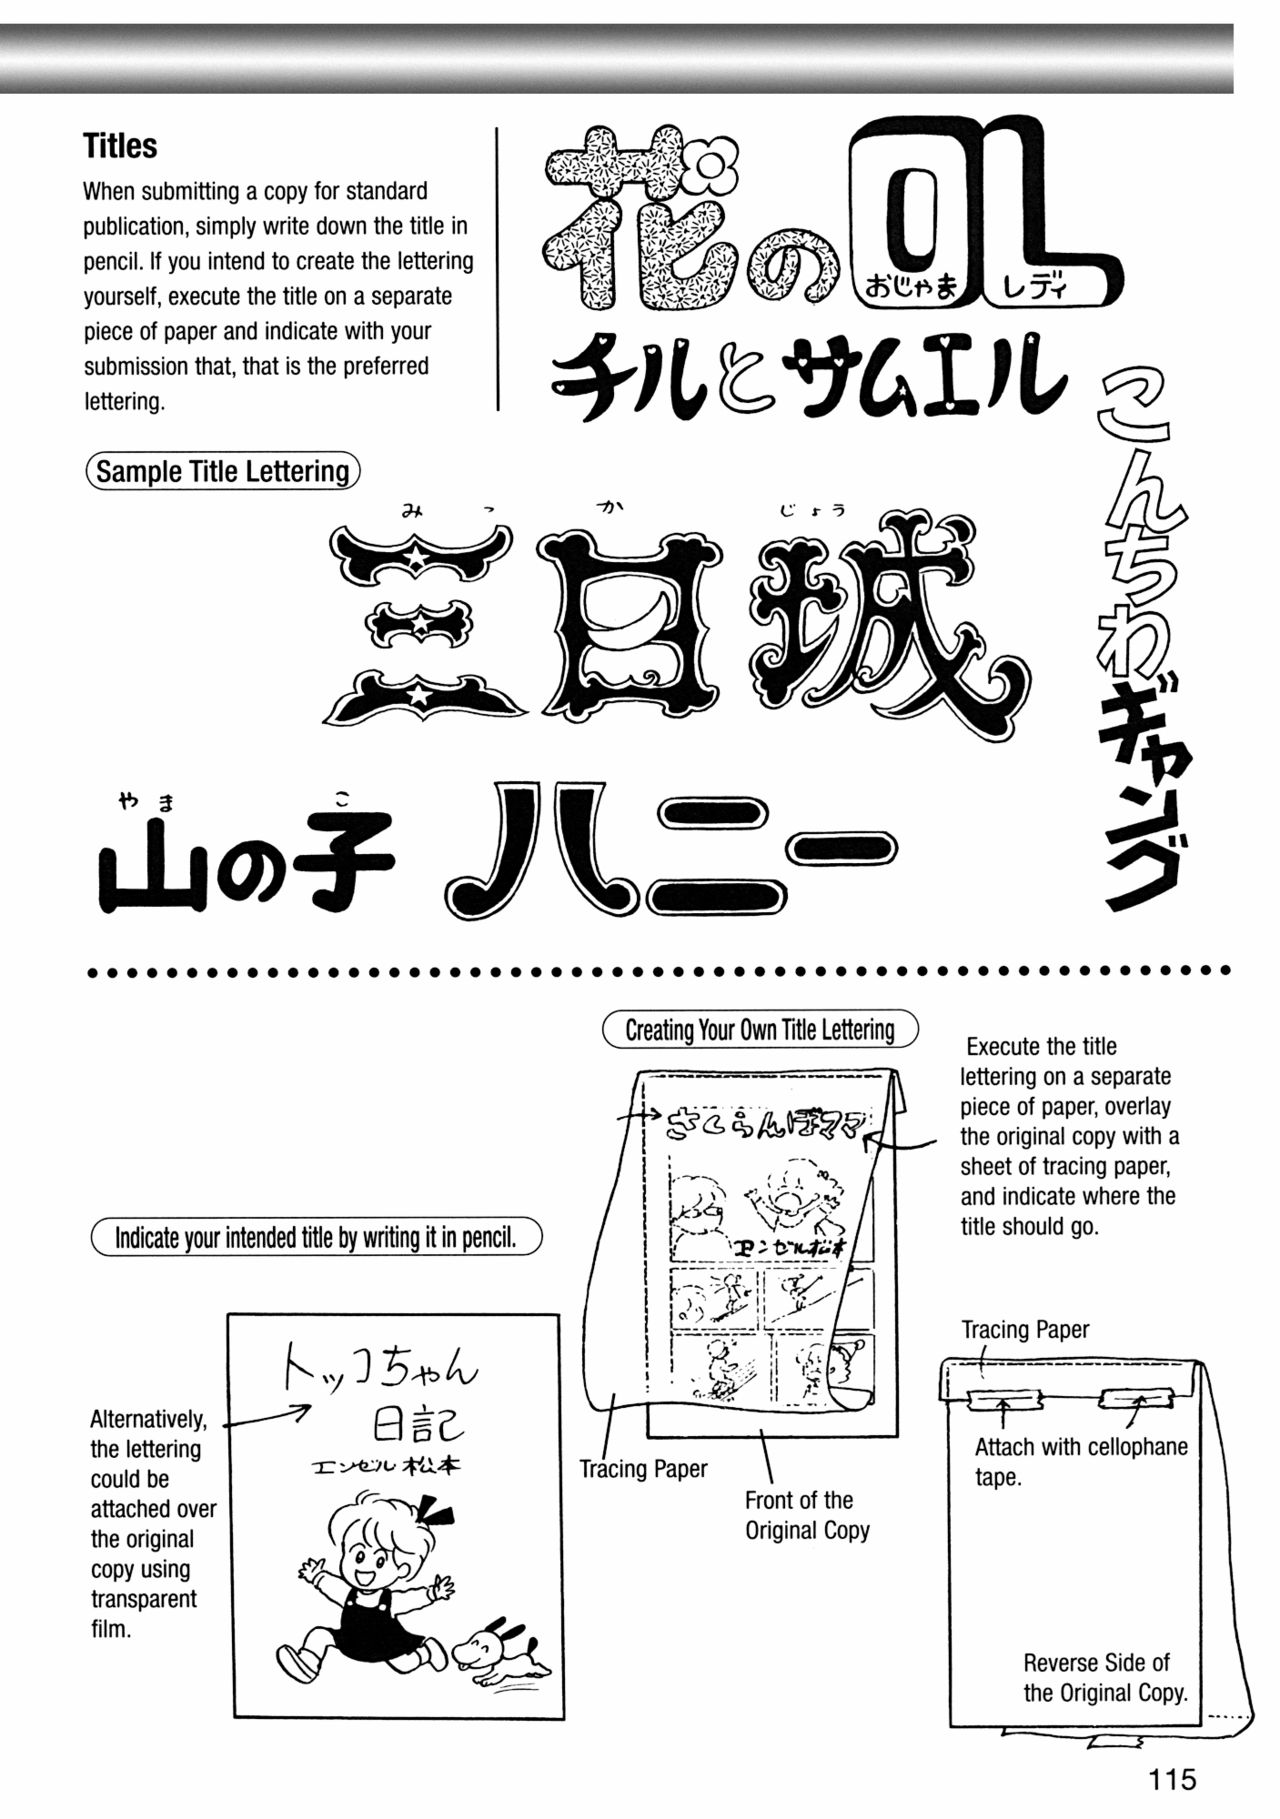 Titles
When submitting a copy for standard
publication, simply write down the title in
pencil. If you intend to create the lettering
yourself, execute the title on a separate
piece of paper and indicate with your
submission that, that is the preferred
lettering.
花のOL
おじゃま レディ
チルとサムエル
こんちわギャング
Sample Title Lettering
みっ か じょう
三日城
やま こ
山の子 ハニー
Creating Your Own Title Lettering
Execute the title
lettering on a separate
piece of paper, overlay
the original copy with a
sheet of tracing paper,
and indicate where the
title should go.
さくらんぼママ
エンゼル松本
Tracing Paper
Front of the
Original Copy
Indicate your intended title by writing it in pencil.
Alternatively,
the lettering
could be
attached over
the original
copy using
transparent
film.
トッコちゃん
日記
エンゼル松本
Tracing Paper
Attach with cellophane
tape.
Reverse Side of
the Original Copy.
115